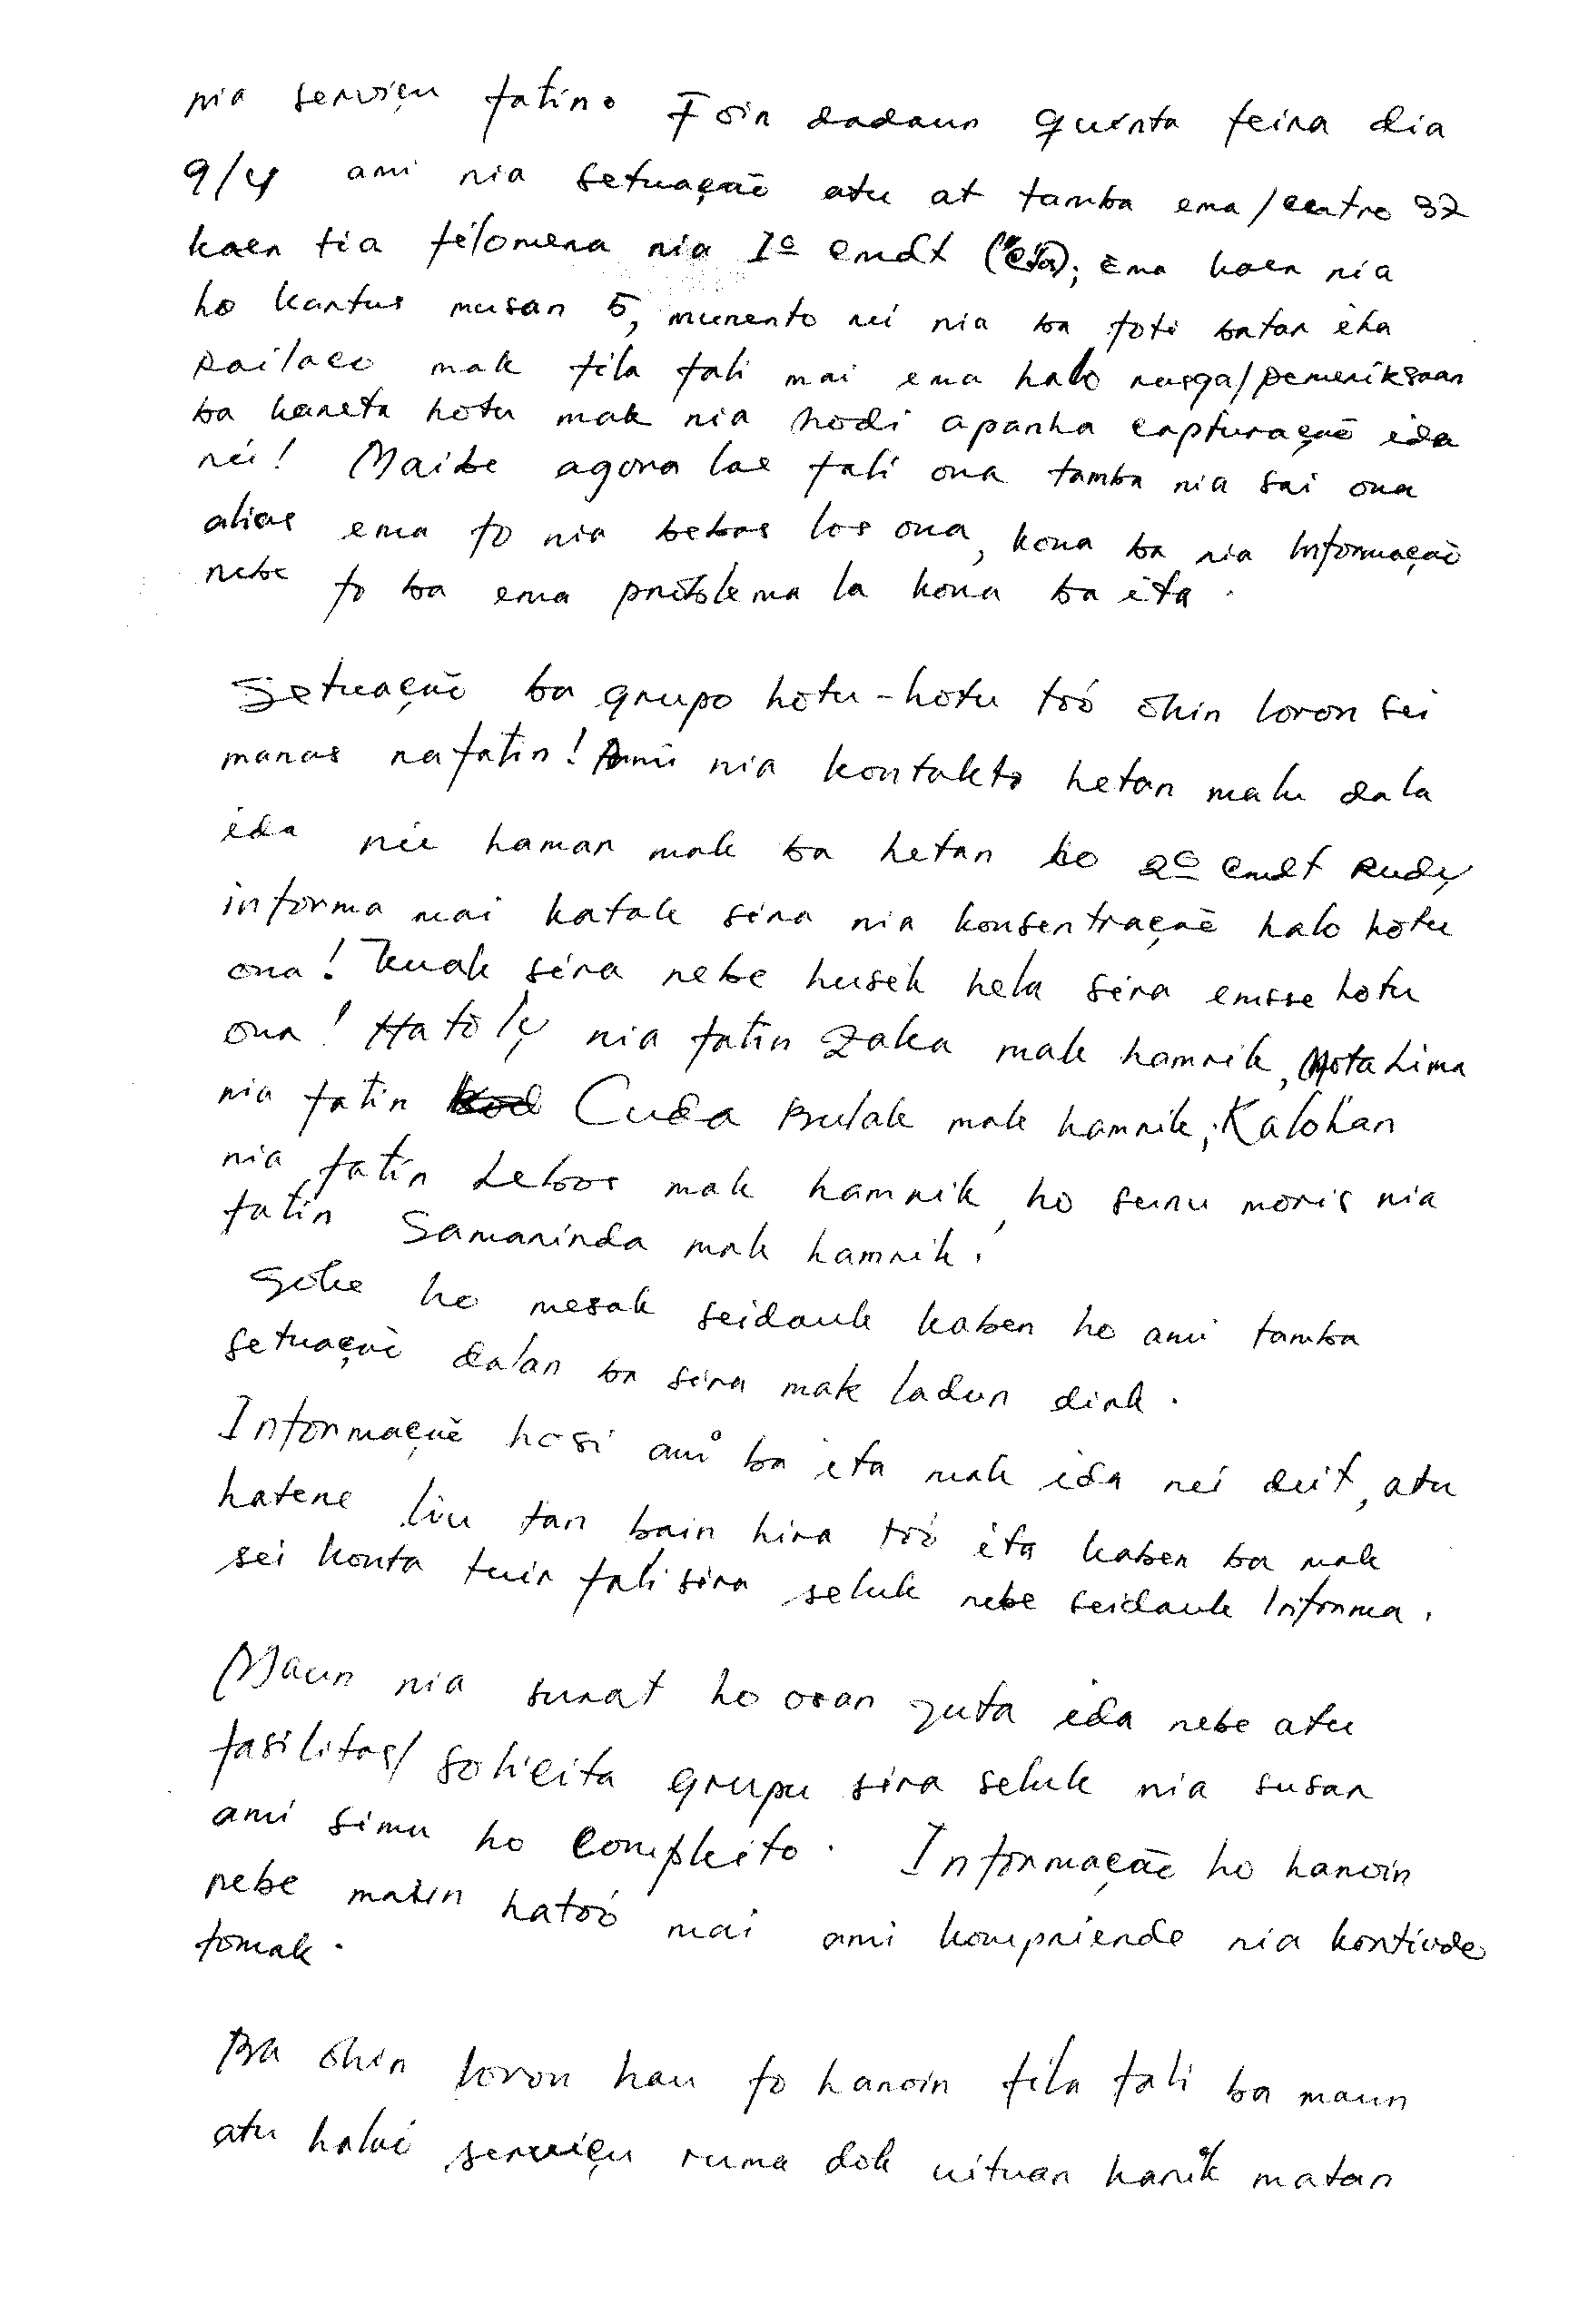 nia serviçu fatin. Foin dadaun quinta feira dia
9/4 ami nia setuação atu at tamba ema/centro 32
kaer tia félomena nia 1º cmdt ; Ema kaer nia
ho kartus musan 5, munento nei nia ba foti batar iha
Railaco mak fila fali mai ema halo rusga/pemeriksaan
ba kareta hotu mak nia hodi apanha capturação ida
néi! Maibe agora lae fali ona tamba nia sai ona
alias ema fo nia bebas los ona, kona ba nia Informação
nebe fo ba ema problema la kona ba ita.
Setuação ba grupo hotu-hotu tó'o ohin loron sei
manas nafatin! Ami nia kontakto hetan malu dala
ida nei haman mak ba hetan ho 2º cmdt Rudy
informa mai katak sira nia konsentração halo hotu
ona! Kuak sira nebe husik hela sira enisse hotu
ona! Hatoly nia fatin Zaka mak hamrik, Mota Lima
nia fatin Cuda Bulak mak hamrik; Kalohan
nia fatin Lebos mak hamrik, ho sunu moris nia
fatin Samarinda mak hamrik.
ho mesak seidauk kaben ho ami tamba
setuação dalan ba sira mak ladun diak.
Informação hosi ami ba ita mak ida nei deit, atu
hatene liu tan bain hira tó'o ita kaben ba mak
sei konta tuir fali sira seluk nebe seidauk Informa.
Maun nia surat ho osan juta ida nebe atu
fasilitas/ solicita grupu sira seluk nia susar
ami simu ho compleito. Informação ho hanoin
nebe maun ható'o mai ami kompriende nia kontiude
tomak.
Ba ohin loron hau fo hanoin fila fali ba maun
atu halo serviçu ruma dok uituan karik matan